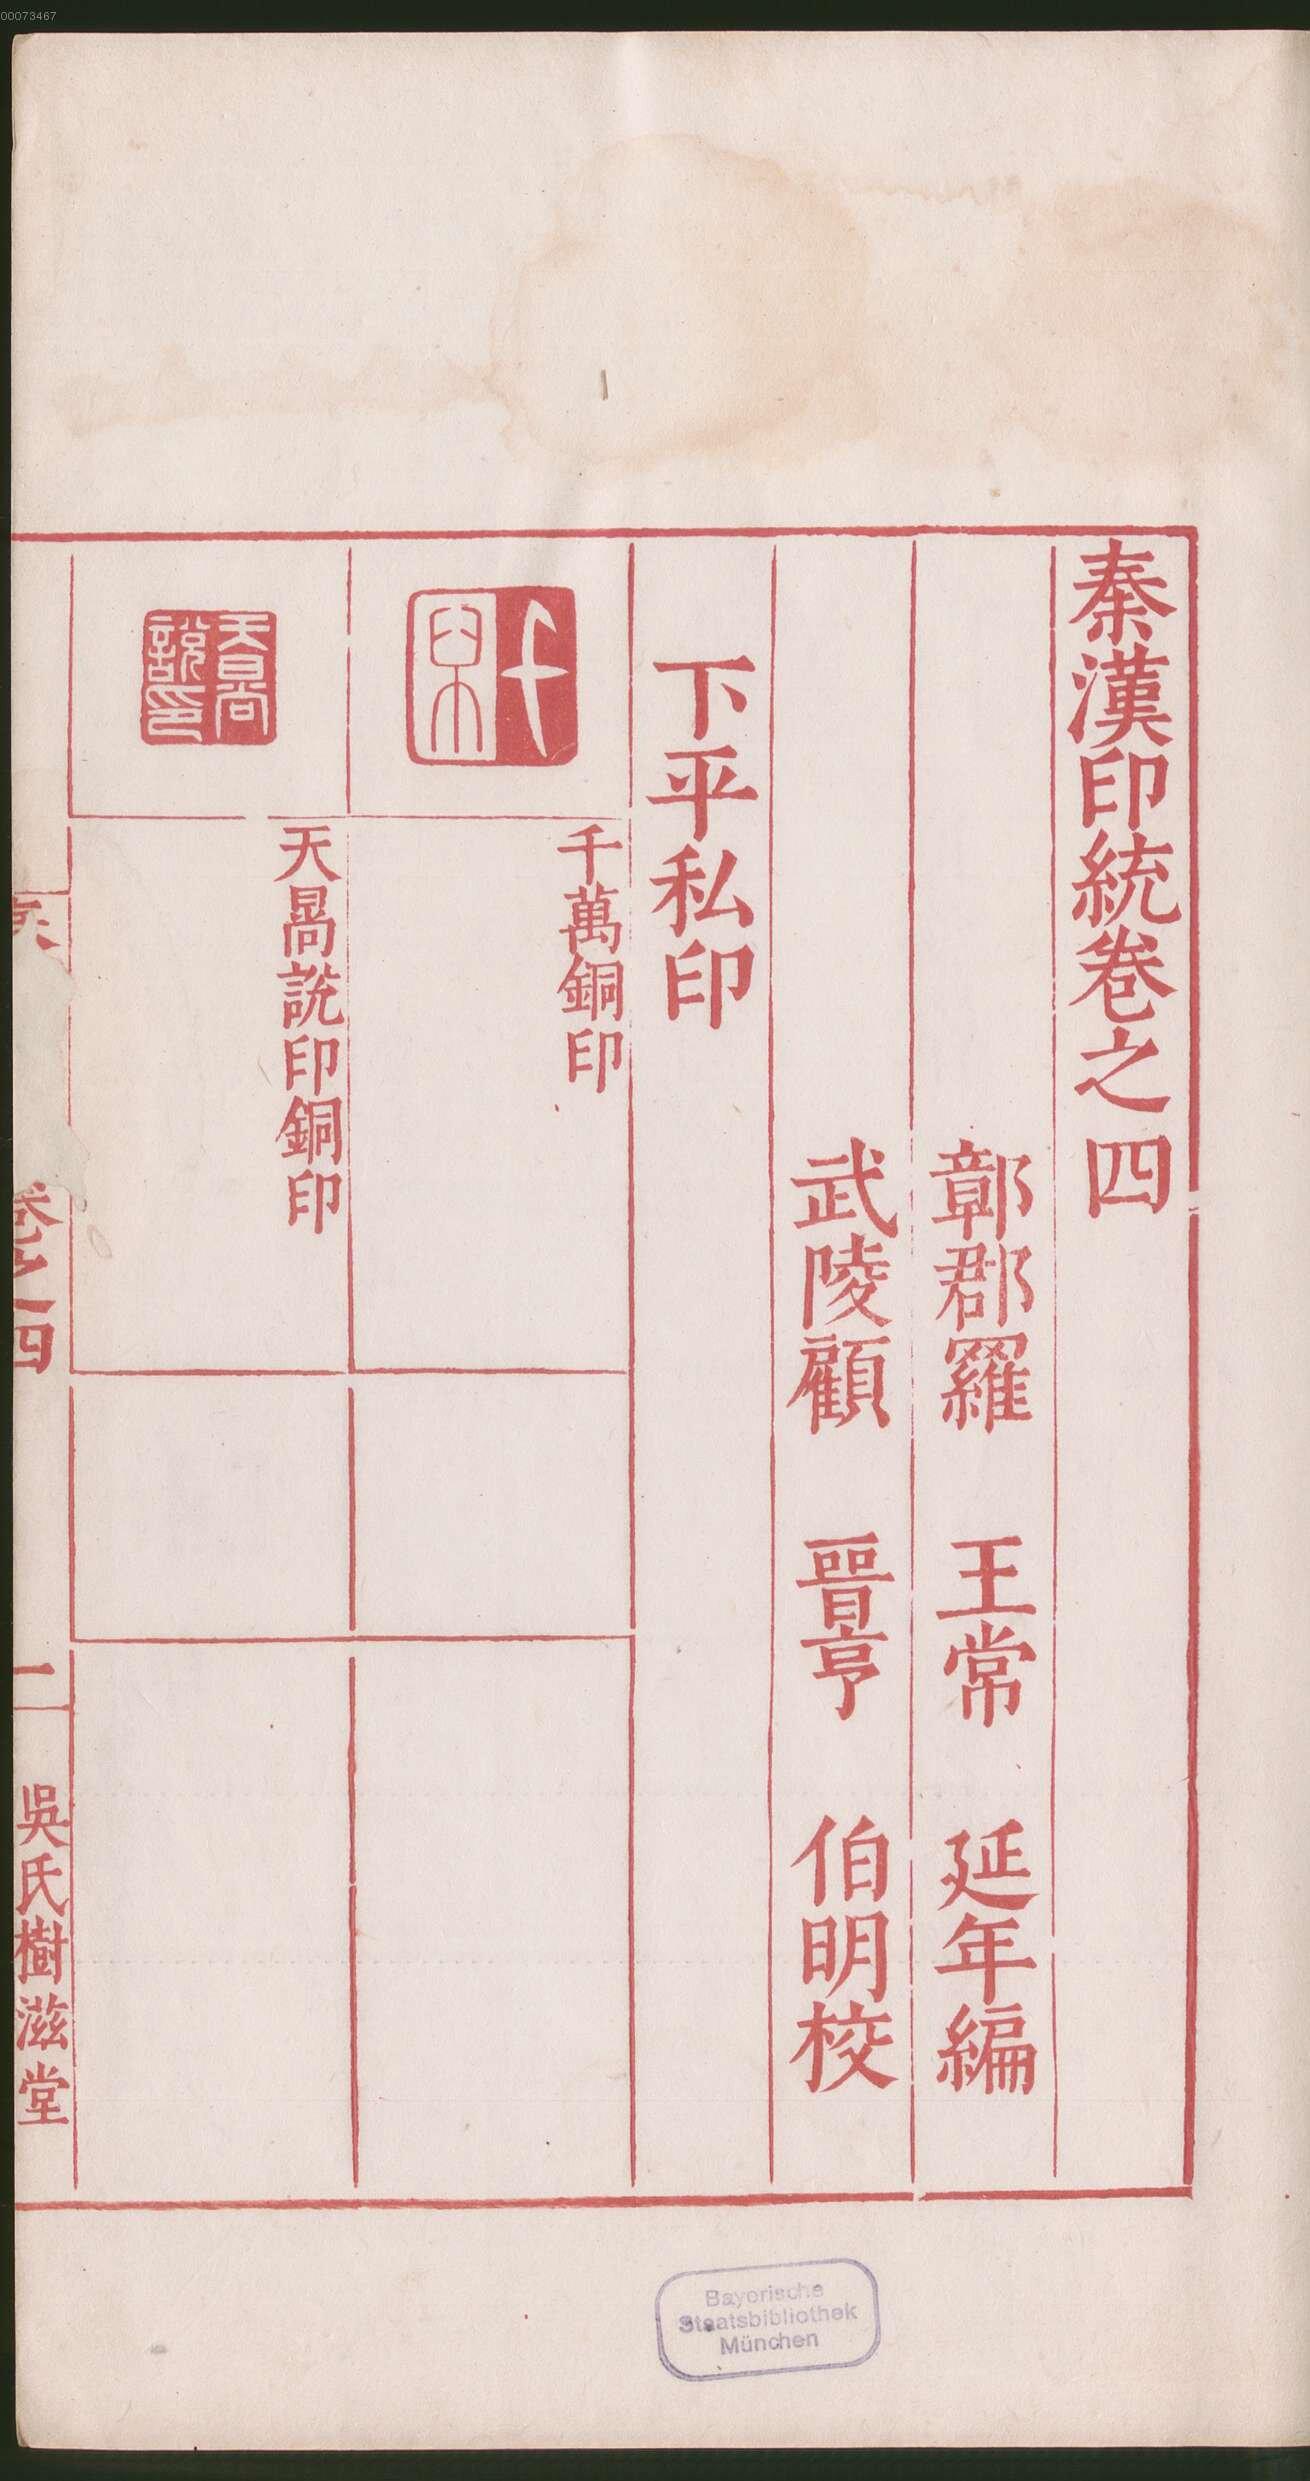 00073467
秦漢印統卷之四
鄣郡羅 王常 延年編
武陵顧 晉亨 伯明校
下平私印
千萬銅印
天暠說印銅印
卷之四
二
吳氏樹滋堂
Bayerische
Staatsbibliothek
München